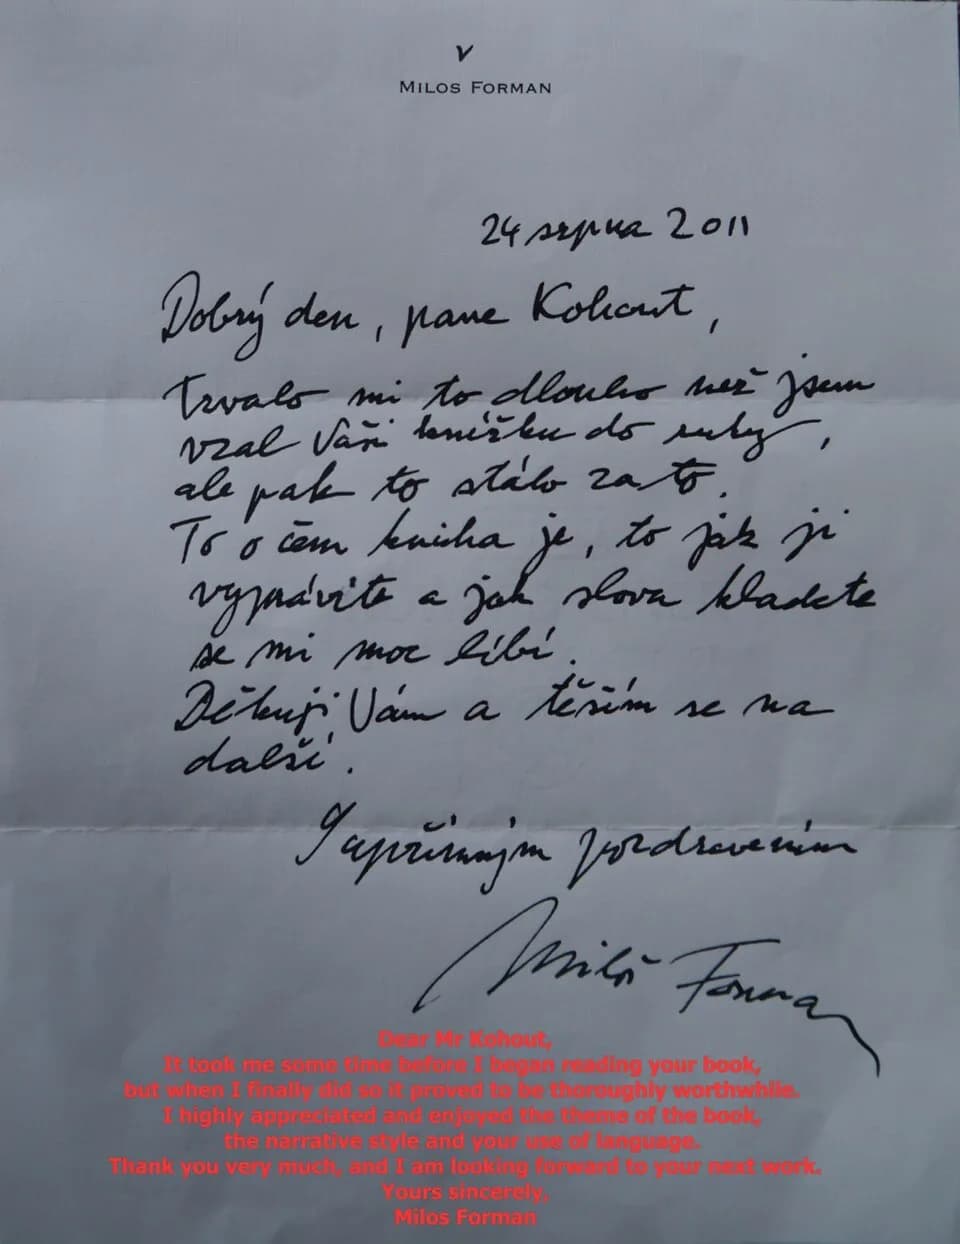 MILOS FORMAN
24 srpna 2011
Dobrý den, pane Kohout,
Trvalo mi to dlouho než jsem
vzal Vaši knížku do ruky,
ale pak to stálo za to.
To o čem kniha je, to jak ji
vyprávíte a jak slova kladete
se mi moc líbí.
Děkuji Vám a těším se na
další.
S upřímným pozdravením
Miloš Forman
Dear Mr Kohout,
It took me some time before I began reading your book,
but when I finally did so it proved to be thoroughly worthwhile.
I highly appreciated and enjoyed the theme of the book,
the narrative style and your use of language.
Thank you very much, and I am looking forward to your next work.
Yours sincerely,
Milos Forman